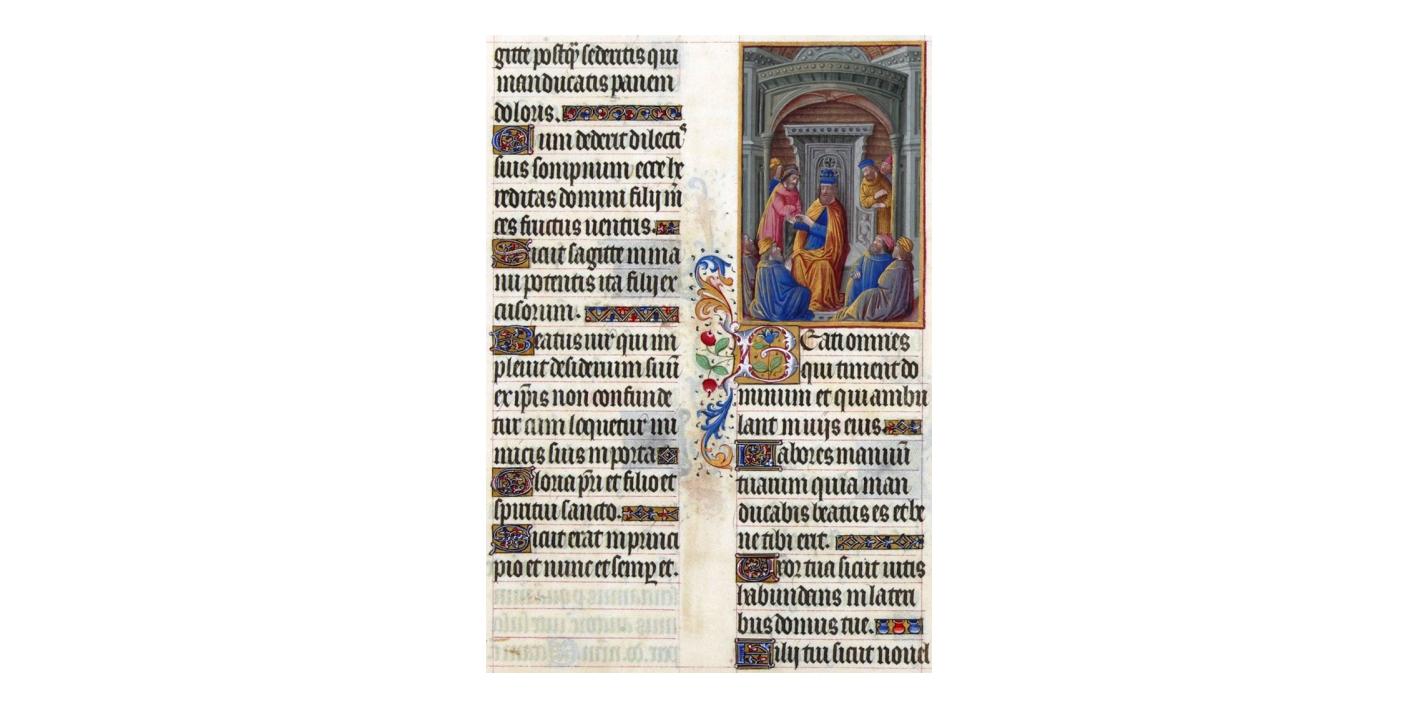 gitte postq̄ sederitis qui
manducatis panem
doloris.
Cum dederit dilectis
suis sompnum ecce he
reditas domini filij m̄
ces fructus uentris.
Sicut sagitte in ma
nu potentis ita filij ex
cusorum.
Beatus uir qui im
pleuit desiderium suū
ex ip̄is non confunde
tur cum loquetur ini
micis suis in porta
Gloria pr̄i et filio et
spiritui sancto.
Sicut erat in princi
pio et nunc et semp̲ et.
Beati omnes
qui timent do
minum et qui ambu
lant in uijs eius.
Labores manuū
tuarum quia man
ducabis beatus es et be
ne tibi erit.
Uxor tua sicut uitis
habundans in lateri
bus domus tue.
Filij tui sicut nouel